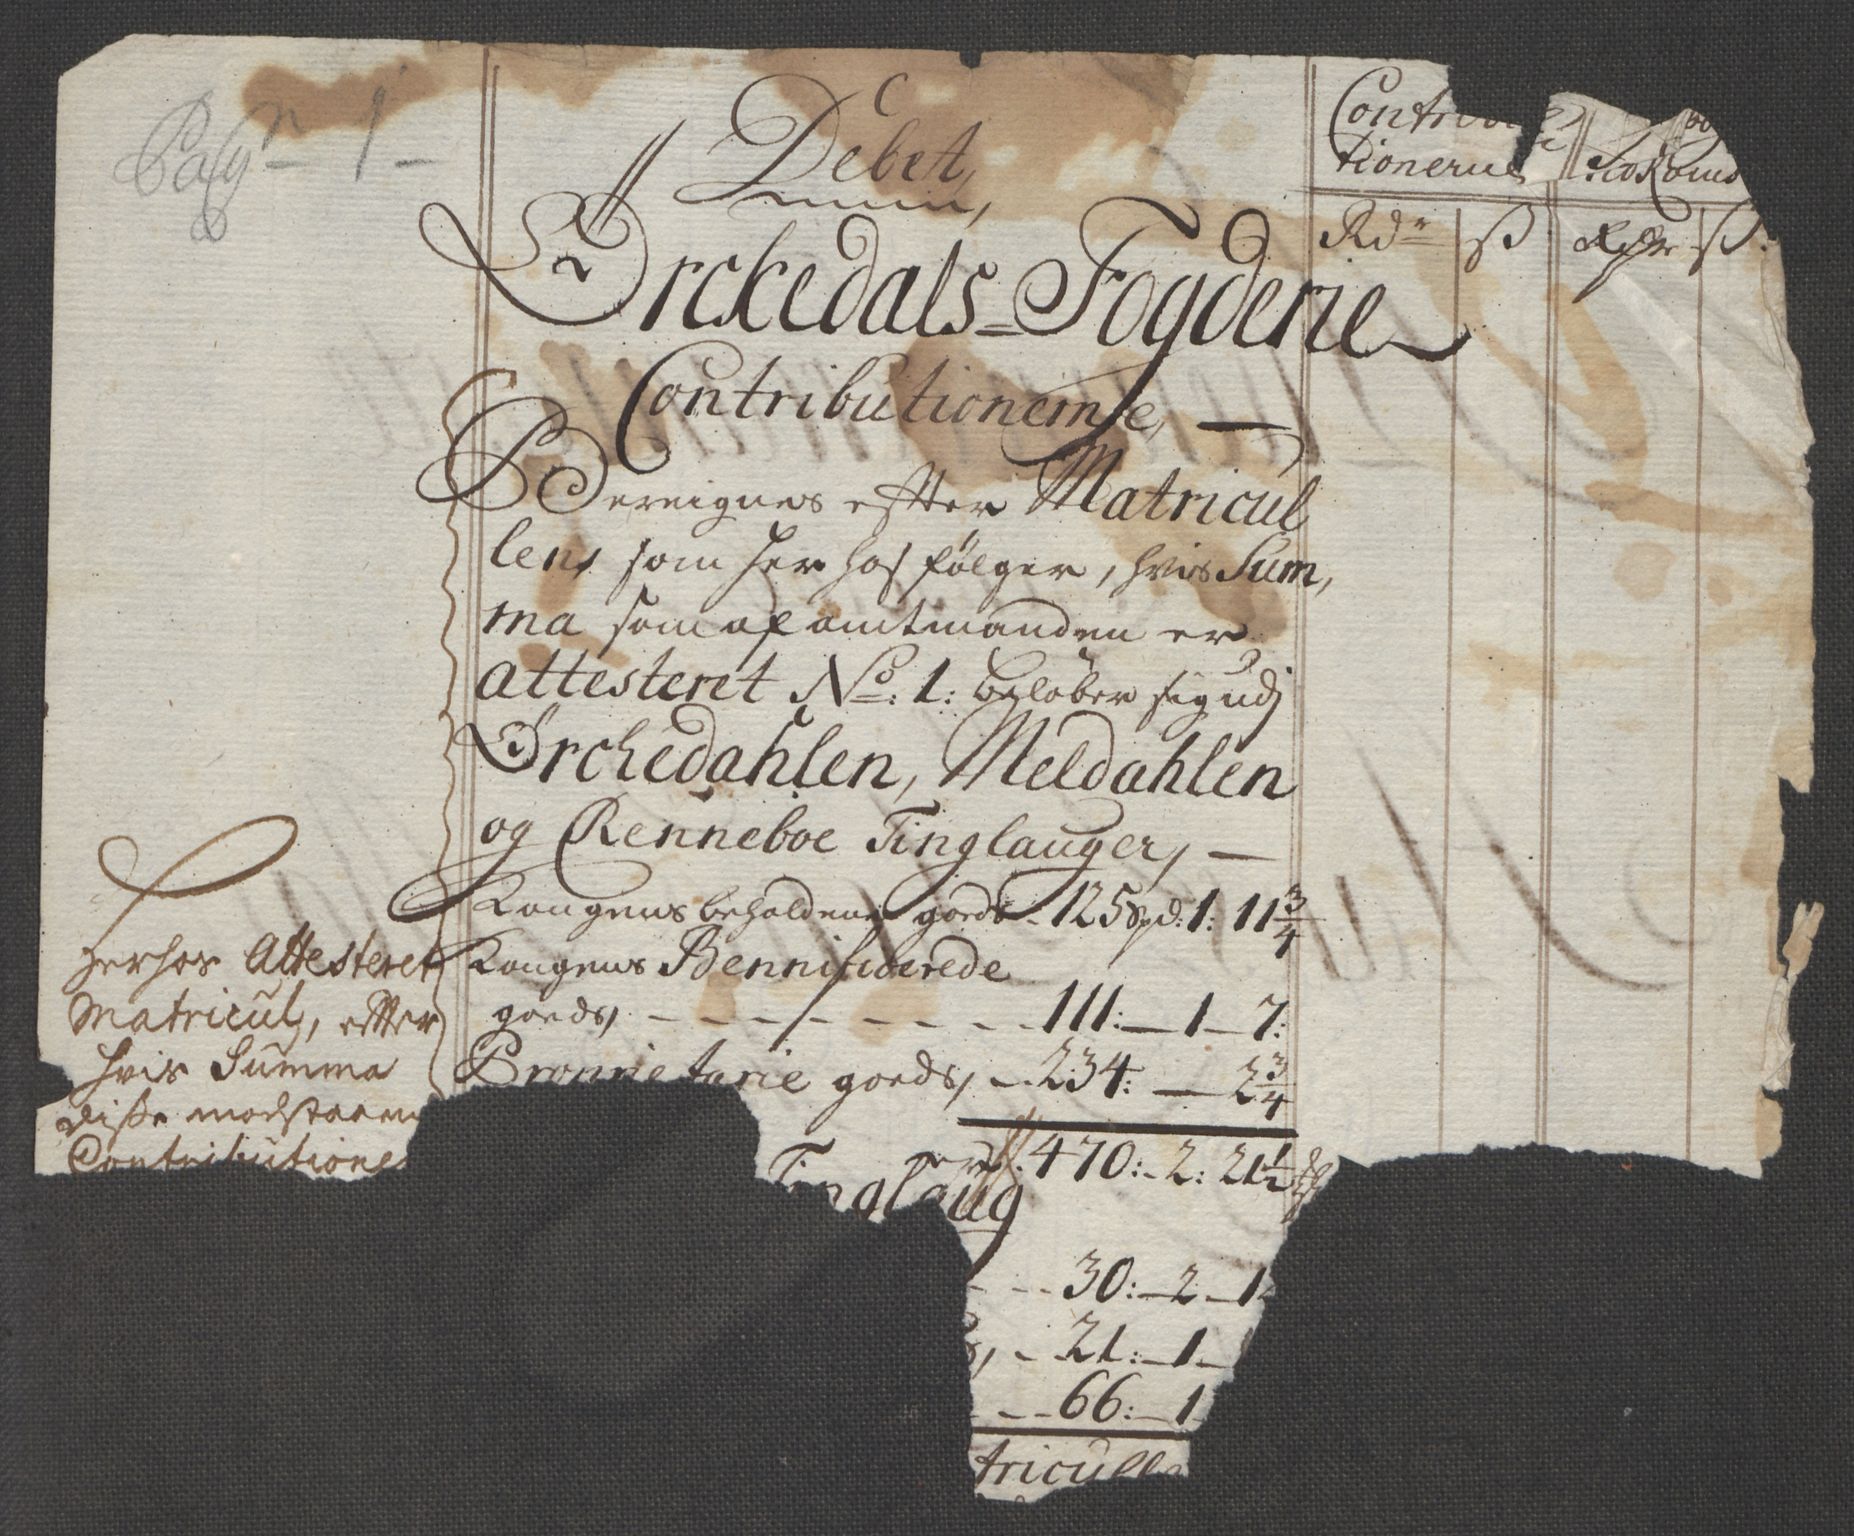 Pagn 1
Debet,
Orckedals=Fogderie
Contributionerne,
Bereignes efter Matricul
len, som her hos følger, hvis Sum,
ma som af amtmanden er
attesteret No: 1: beløber sig udj
Orchedahlen, Meldahlen
og Renneboe Tinglauger,
Kongens beholdene goeds 125 spd: 1: 11 3/4
Kongens Bennificerede
goeds, 111: 1 7:
Proprietarie goeds, 234: 2 3/4
470: 2: 21 1/2
Tinglaug
30: 2 1
21: 1
66: 1
tricull
herhos Attesteret
Matricul, efter
hvis Summa
disse modstaaen
Contributione
Contribu
tionerne
Rdr ß
ß